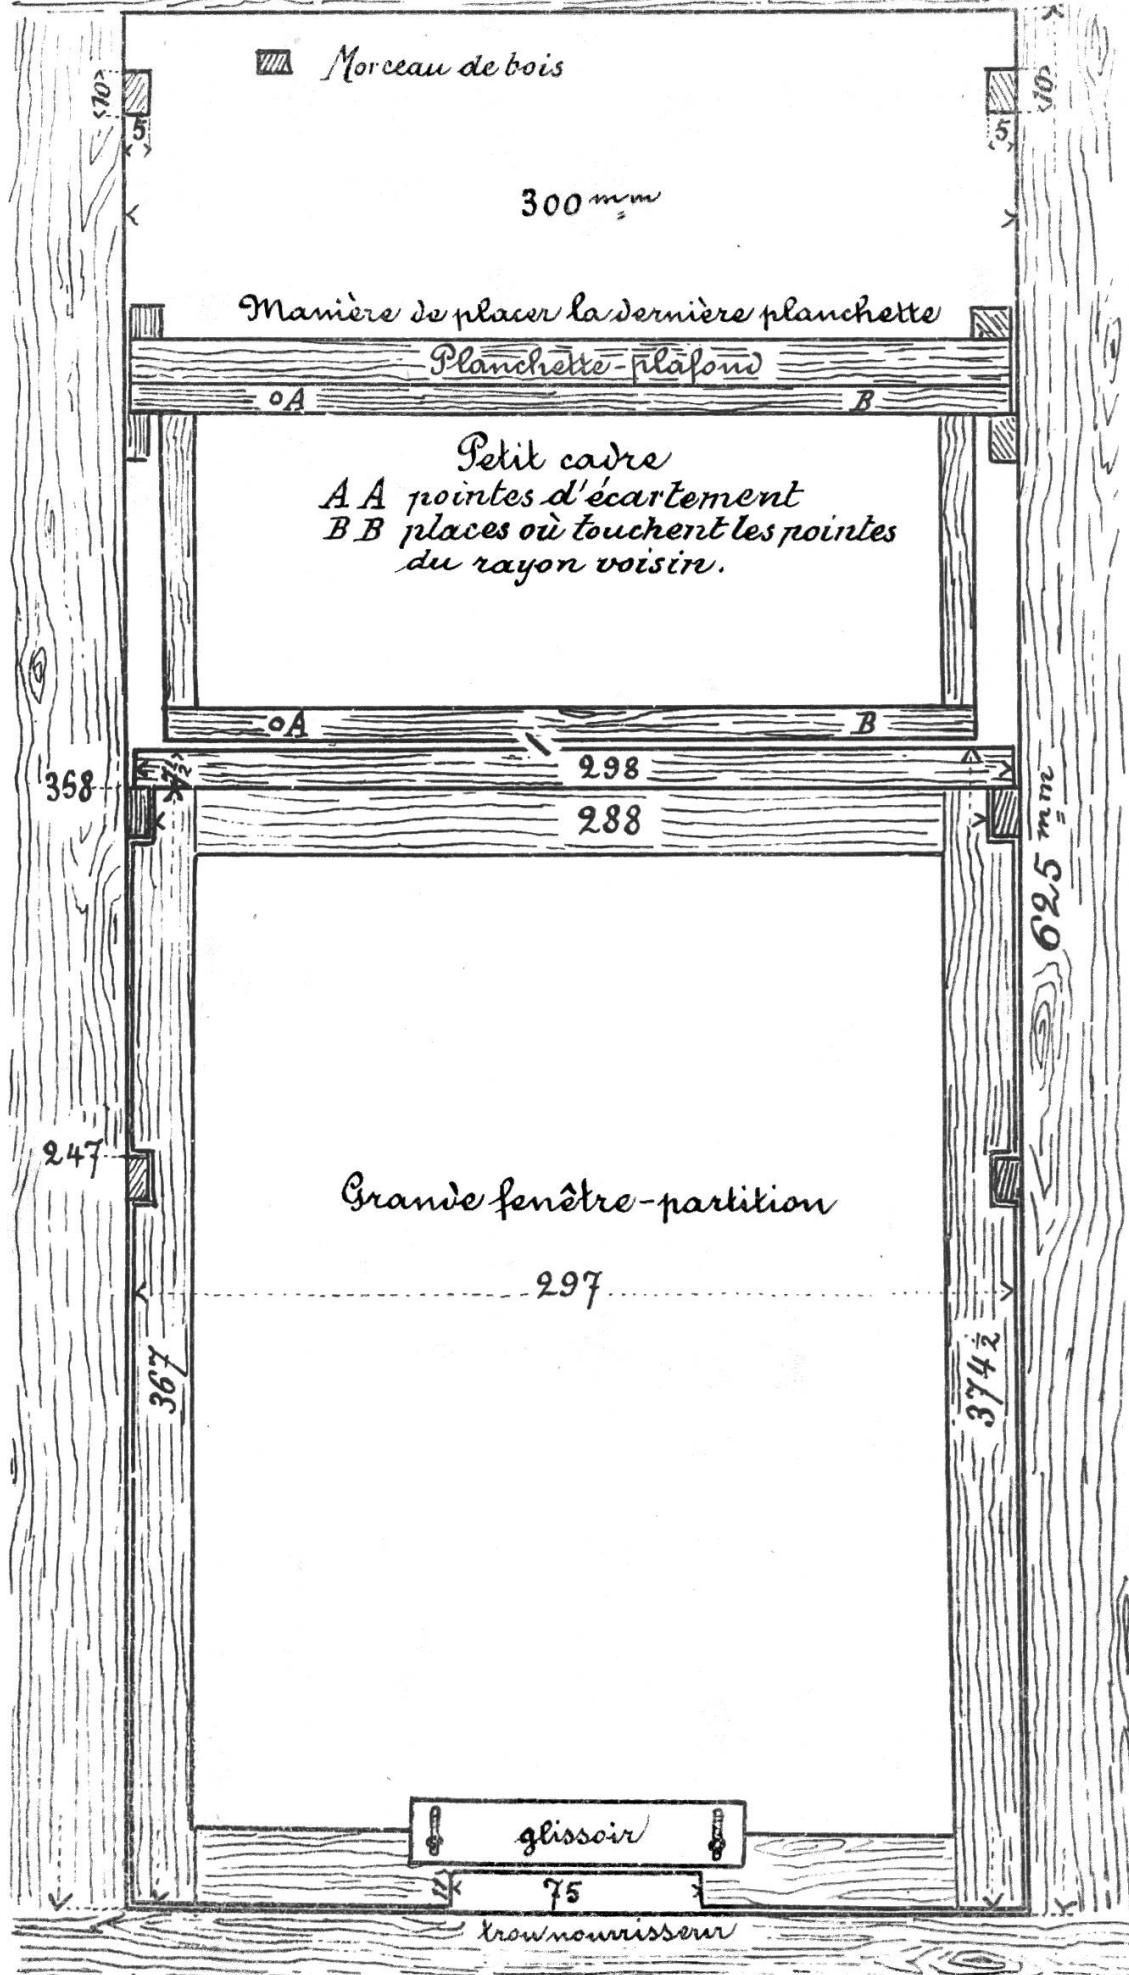 Morceau de bois
10
10
5
5
300 mm
Manière de placer la dernière planchette
Planchette-plafond
A
B
Petit cadre
A A pointes d'écartement
B B places où touchent les pointes
du rayon voisin.
A
B
368
7½
298
288
625 mm
247
Grande fenêtre-partition
297
367
374½
glissoir
11
75
trou nourrisseur